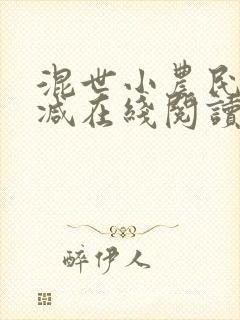 混世小農民
减在綫閱讀
醉伊人